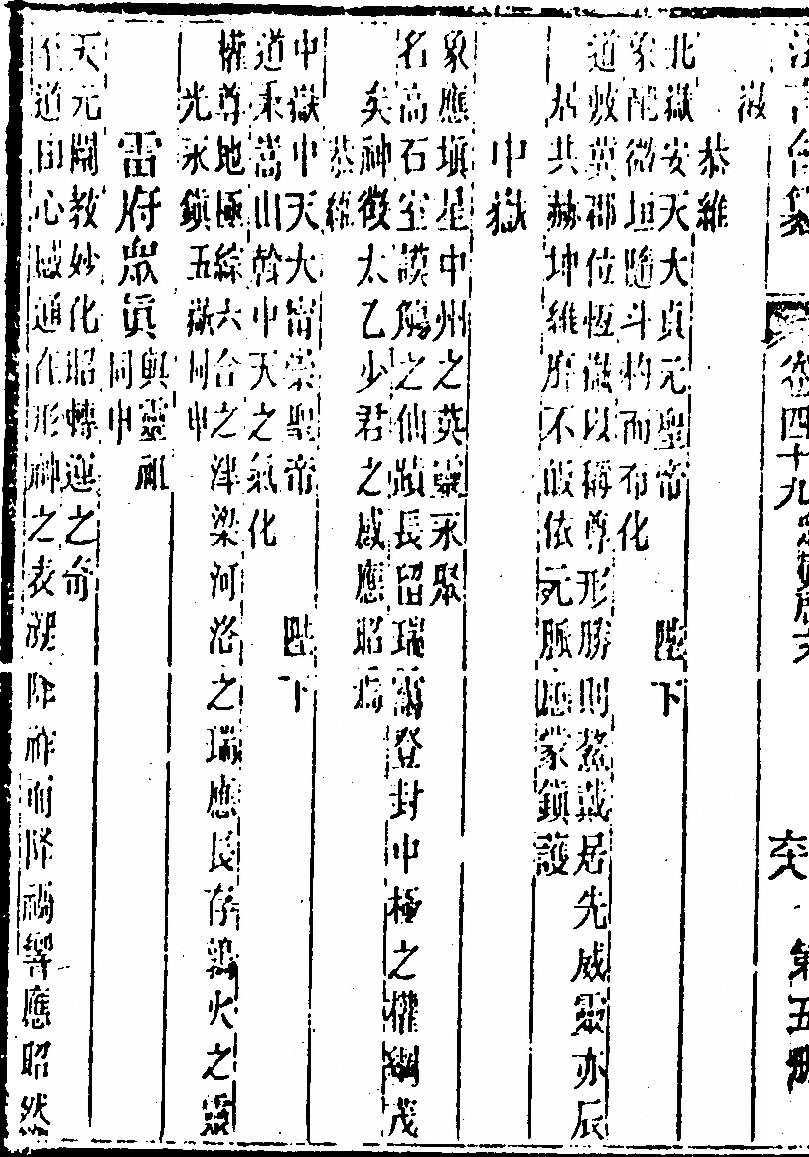 法言會纂 卷四十九 六 第五册
溦
恭維
北嶽安天大貞元聖帝 陛下
象配微垣隨斗杓而布化
道敷冀郡位恆嶽以稱尊形勝則鰲戴居先威靈亦辰
居共赫坤維所不皈依元脈應蒙鎖護
中嶽
象應塡星中州之英靈永聚
名高石室謨觴之仙蹟長留瑞靄登封中極之權衡茂
矣神徵太乙少君之感應昭焉
恭維
中嶽中天大甯崇聖帝 陛下
道秉嵩山斡中天之氣化
權尊地極綜六合之津梁河洛之瑞應長存鶉火之靈
光永鎮五嶽同申
雷府眾眞與靈祖同申
天元闡教妙化昭轉運之奇
至道由心感通在形神之表溯降祚而降禍響應昭然